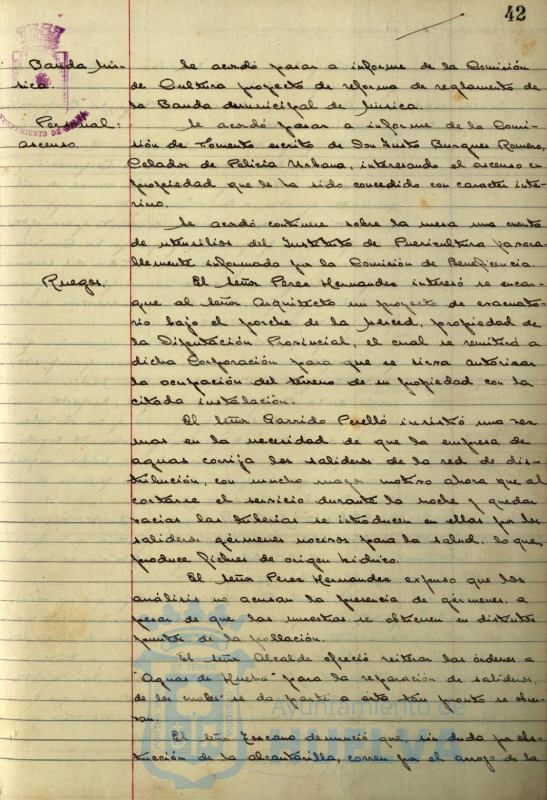 42
Banda Mú-
sica.
Se acordó pasar a informe de la Comisión
de Cultura proyecto de reforma de reglamento de
la Banda Municipal de Música.
Personal:
ascenso.
Se acordó pasar a informe de la Comi-
sión de Fomento escrito de Don Justo Burques Romero,
Celador de Policía Urbana, interesando el ascenso en
propiedad que le ha sido concedido con caracter inte-
rino.
Se acordó continue sobre la mesa una cuenta
de utensilios del Instituto de Puericultura favora-
blemente informada por la Comisión de Beneficencia.
Ruegos.
El Señor Perez Hernandez interesó se encar-
gue al Señor Arquitecto un proyecto de evacuato-
rio bajo el porche de la Merced, propiedad de
la Diputación Provincial, el cual se remitirá a
dicha Corporación para que se sirva autorizar
la ocupación del terreno de su propiedad con la
citada instalación.
El Señor Garrido Perelló insistió una vez
mas en la necesidad de que la empresa de
aguas corrija los salideros de la red de dis-
tribución, con mucho mayor motivo ahora que al
cortarse el servicio durante la noche y quedar
vacias las tuberias se introducen en ellas por los
salideros gérmenes nocivos para la salud, lo que
produce fiebres de origen hídrico.
El Señor Perez Hernandez expuso que los
análisis no acusan la presencia de gérmenes, a
pesar de que las muestras se obtienen en distintos
puntos de la población.
El Señor Alcalde ofreció reiterar las órdenes a
"Aguas de Huelva" para la reparación de salideros,
de los cuales se da parte a ésta tan pronto se obser-
van.
El Señor Toscano denunció que, sin duda por obs-
trucción de la alcantarilla, corren por el arroyo de la
Ayuntamiento de
HUELVA